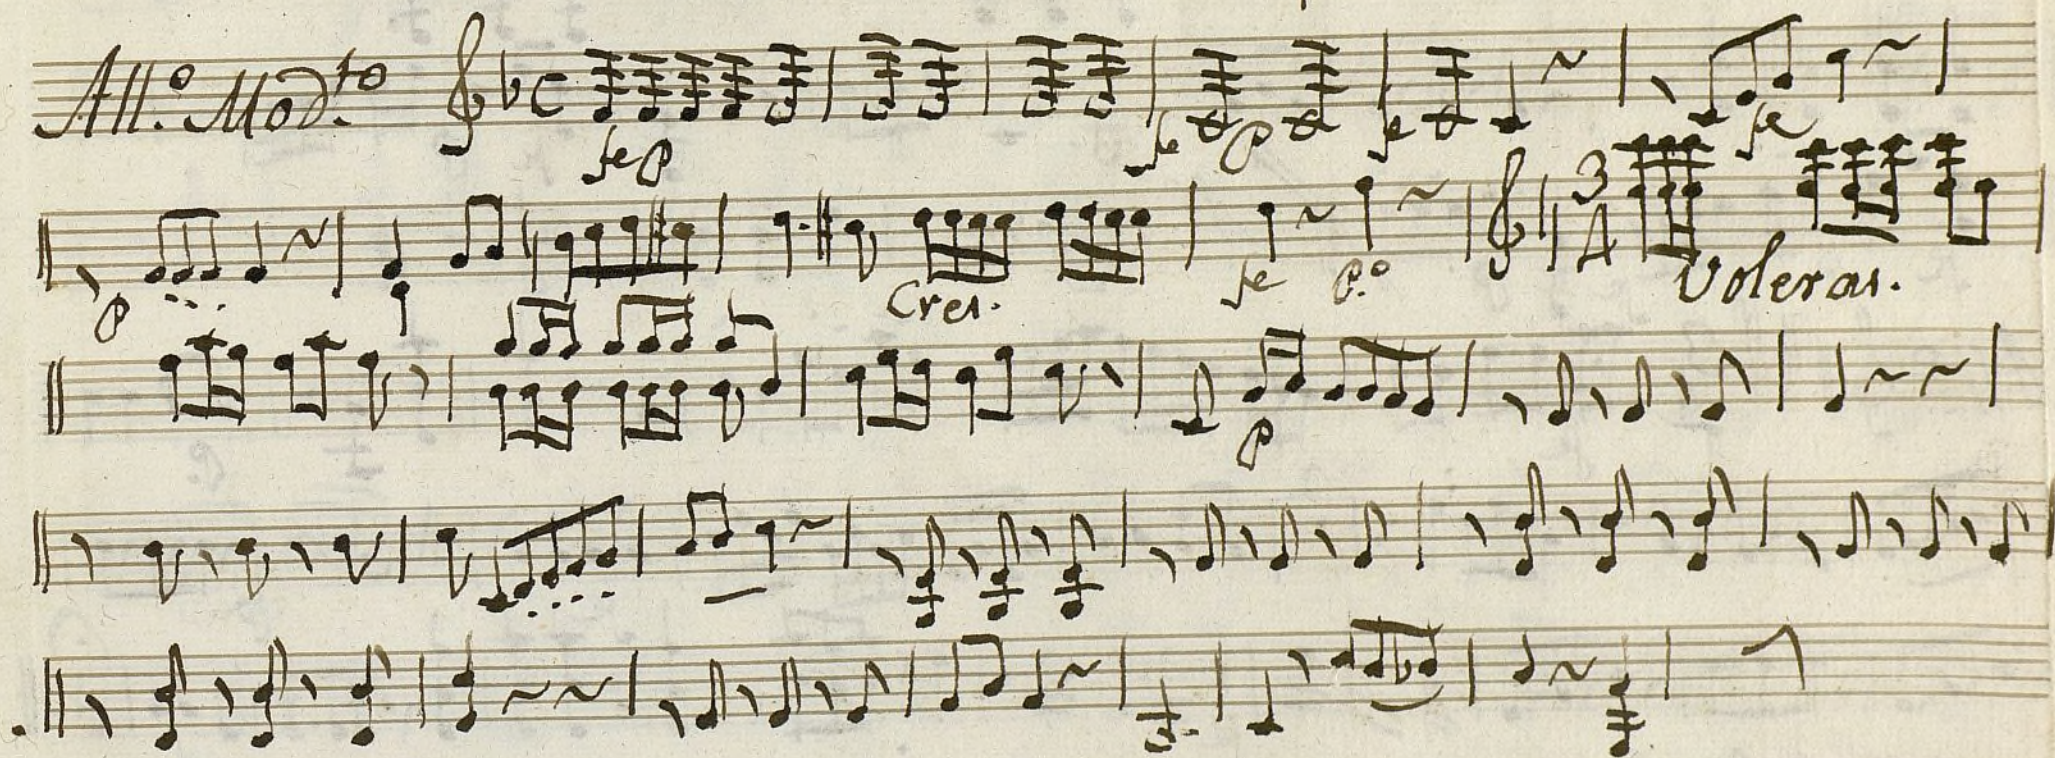 All.º Mod.to
fe p fe p fe fe
p Cres. fe p.º 3 4 Voleras.
p